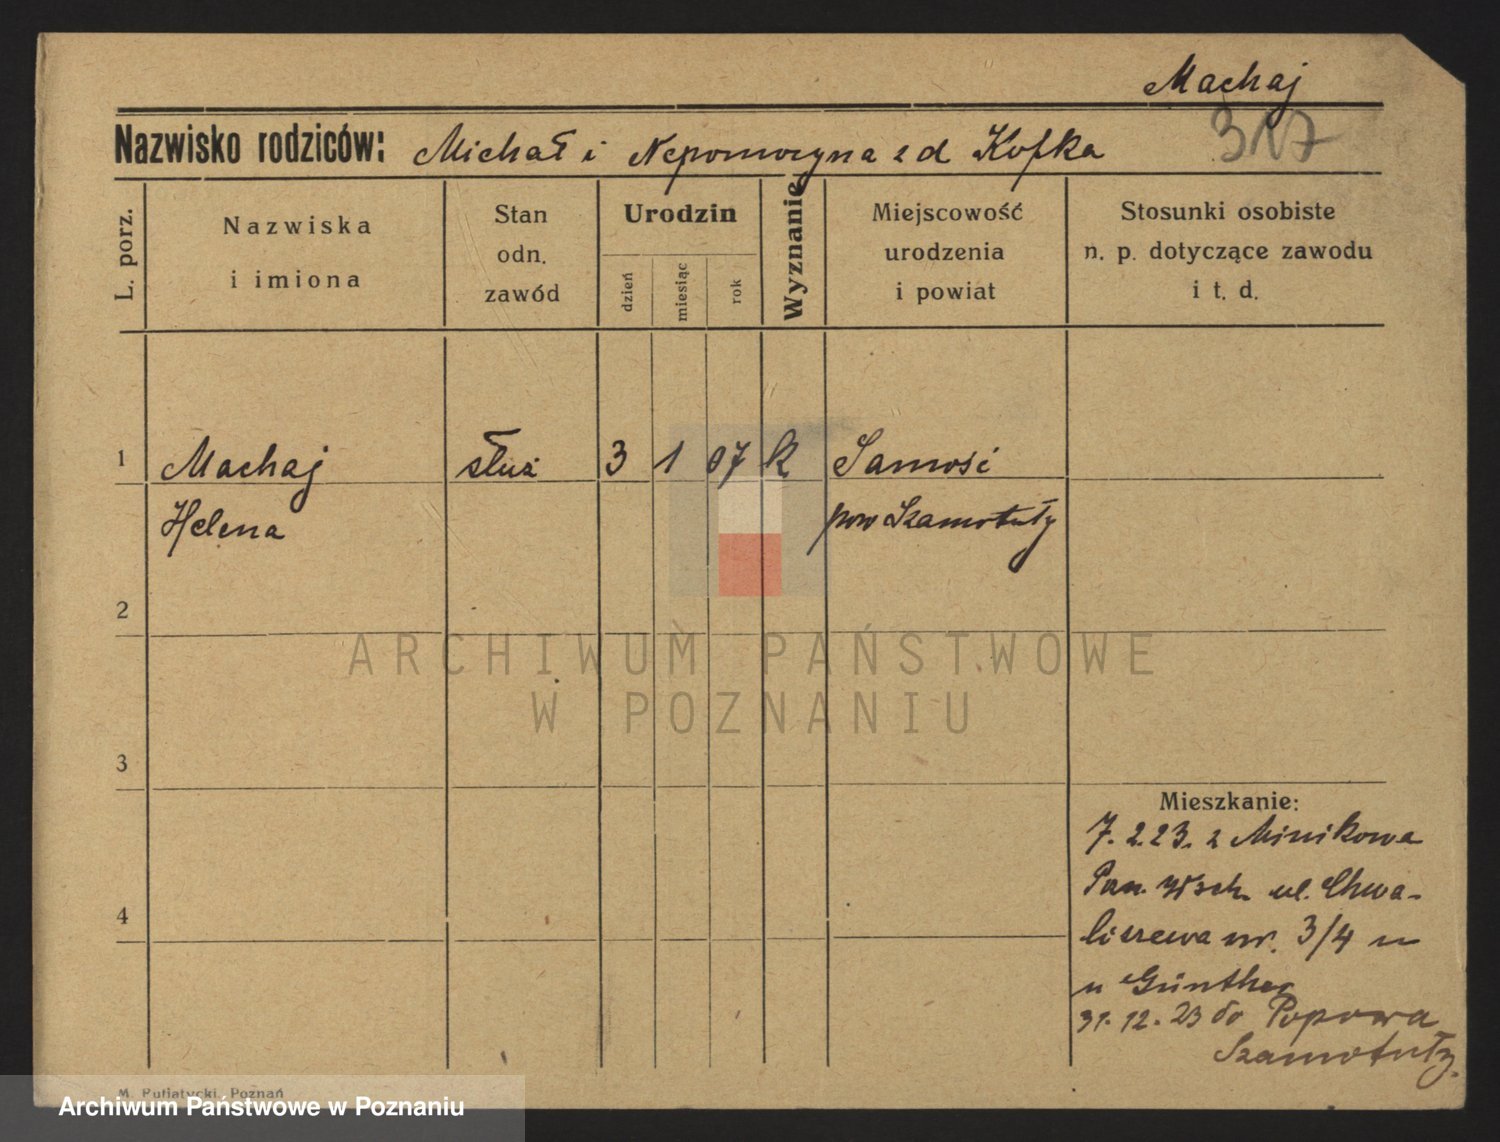 Machaj
Nazwisko rodziców: Michał i Nepomocyna z d Kofka
317
L. porz.
Nazwiska
i imiona
Stan
odn.
zawód
Urodzin
dzień
miesiąc
rok
Wyznanie
Miejscowość
urodzenia
i powiat
Stosunki osobiste
n. p. dotyczące zawodu
i t. d.
1 Machaj służ 3 1 07 k Samość
Helena pow Szamotuły
2
3
4
ARCHIWUM PAŃSTWOWE
W POZNANIU
Mieszkanie:
7. 2.23. z Minikowa
ul. Chwa-
liszewa nr. 3/4
u Günther
31. 12. 23 do Popowa
Szamotuły.
M. Putiatycki, Poznań
Archiwum Państwowe w Poznaniu